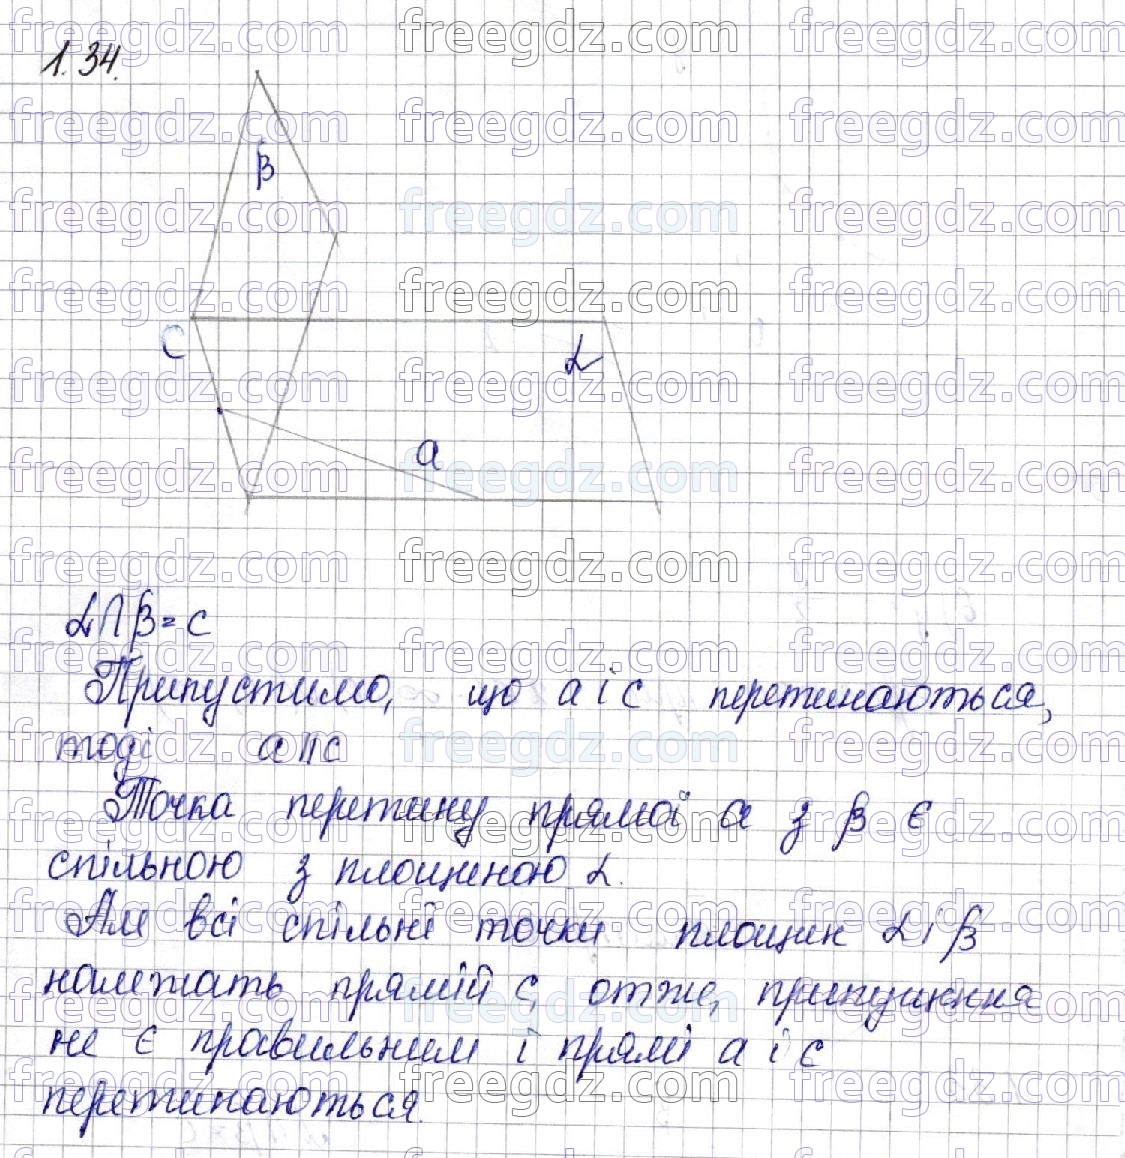 1.34.
β
C
α
a
α∩β = c
Припустимо, що a і c перетинаються,
тоді a॥c
Точка перетину прямої a з β є
спільною з площиною α.
Але всі спільні точки площин α і β
належать прямій c, отже, припущення
не є правильним і прямі a і c
перетинаються.
freegdz.com